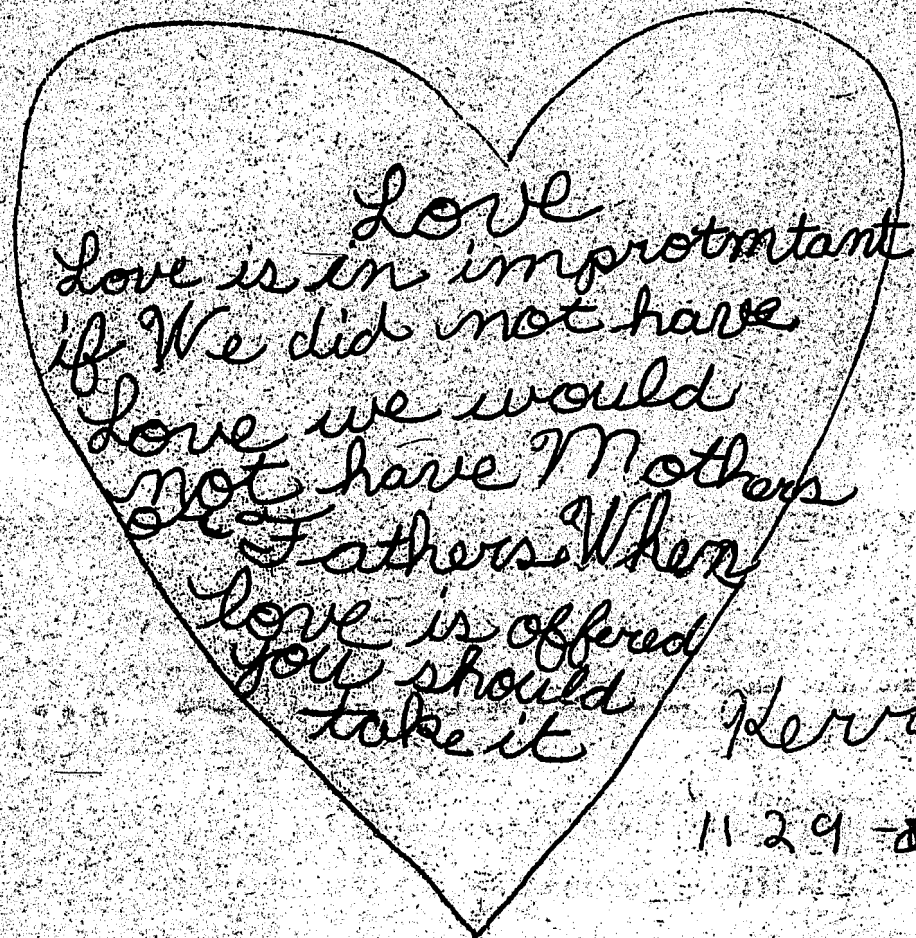 Love
Love is in improtmtant
if We did not have
Love we would
not have Mothers
or Fathers. When
love is offered
you should
take it
11 29